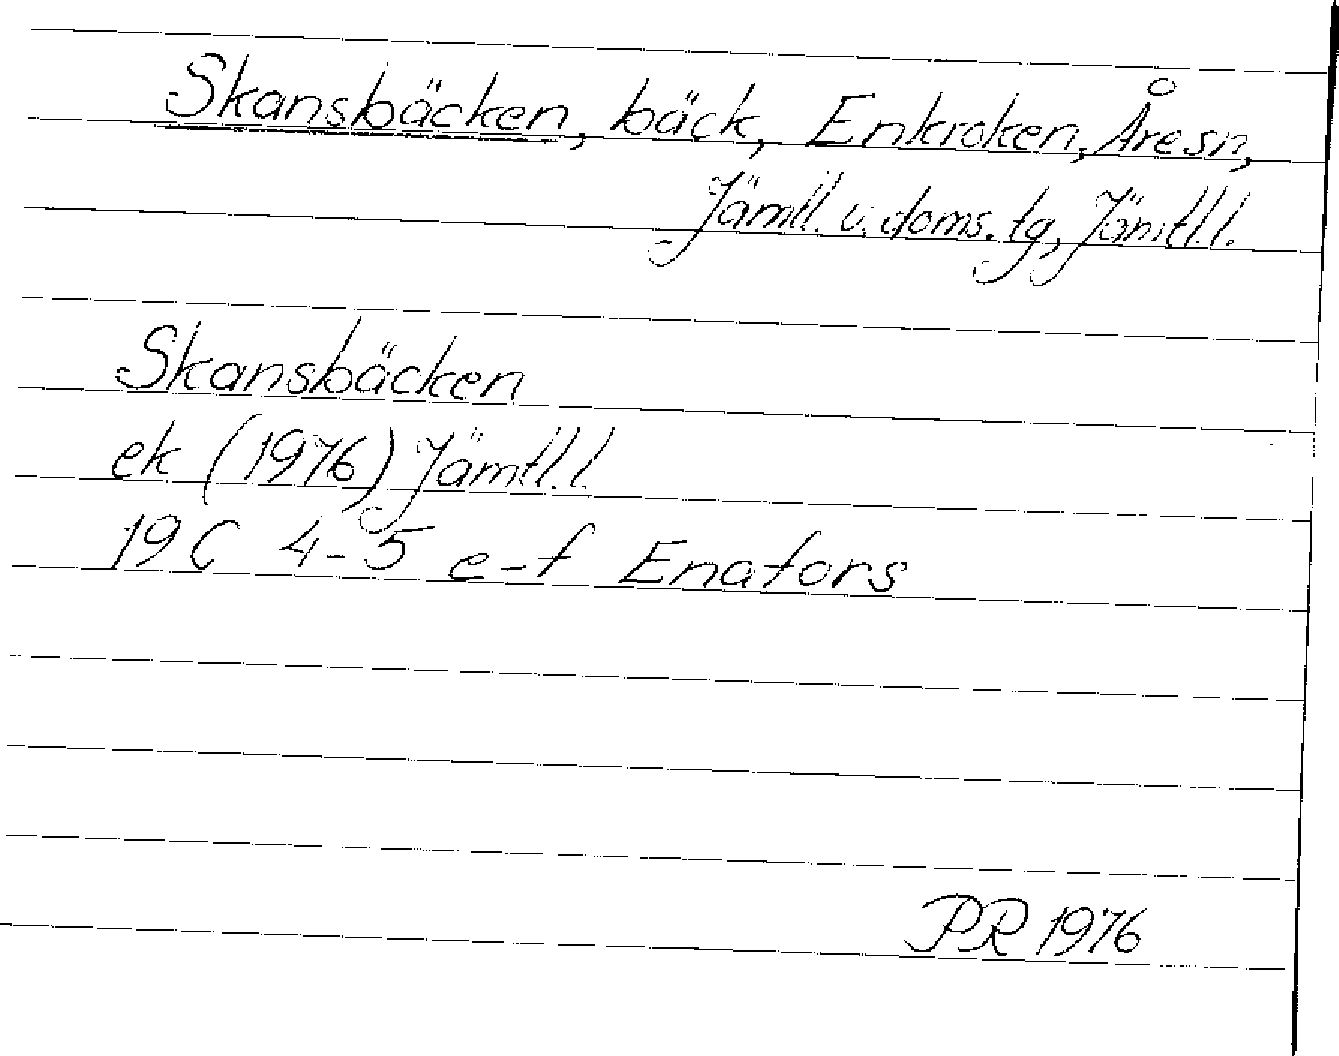 Skansbäcken, bäck, Enkroken, Åre sn,
Jämtl. v. doms. tg, Jämtl.l.
Skansbäcken
ek (1976) Jämtl.l.
19C 4-5 e-f Enafors
PR 1976